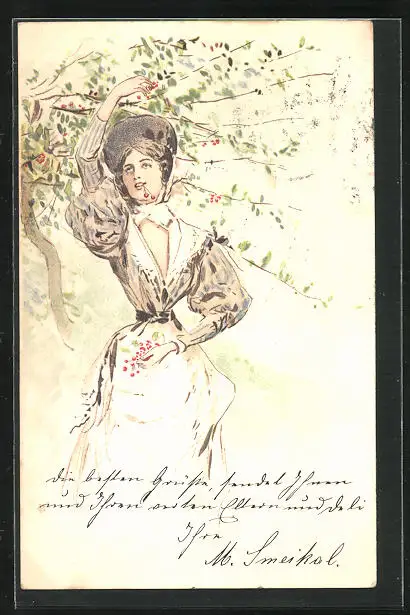 Die besten Grüße, sendet Ihnen
und Ihren werten Eltern und
Ihre
M. Smeikal.